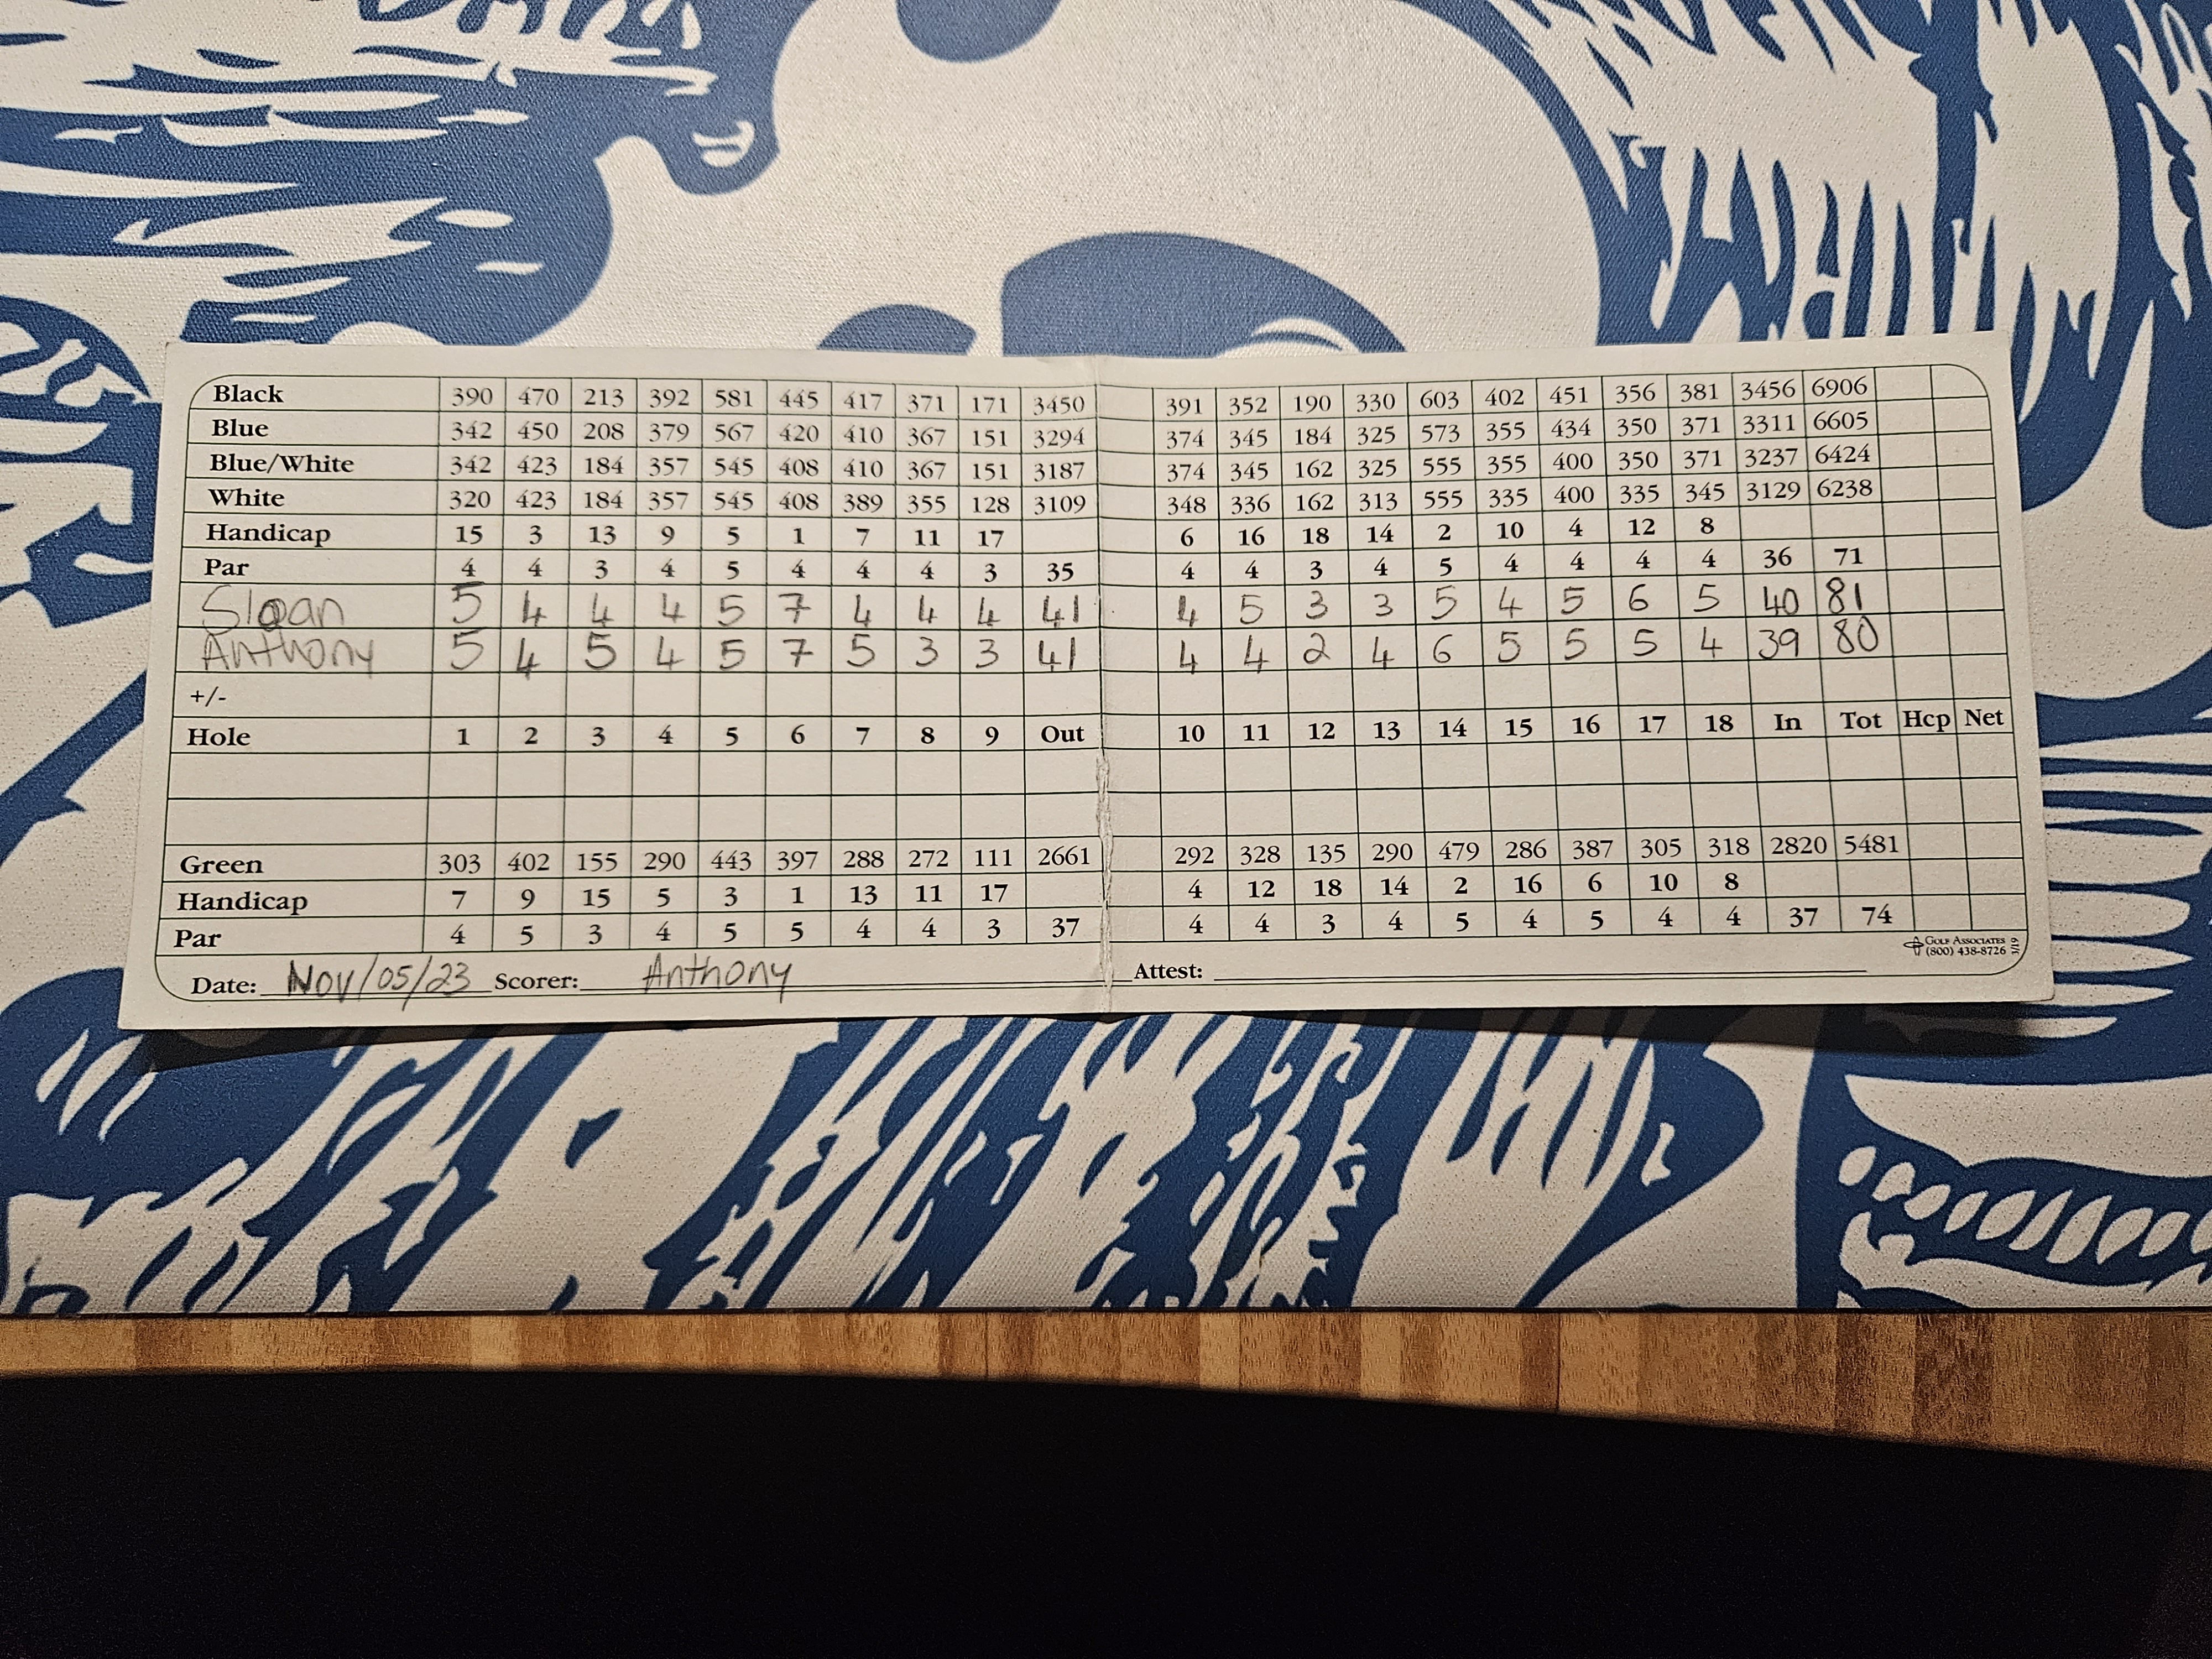 Black 390 470 213 392 581 445 417 371 171 3450 391 352 190 330 603 402 451 356 381 3456 6906
Blue 342 450 208 379 567 420 410 367 151 3294 374 345 184 325 573 355 434 350 371 3311 6605
Blue/White 342 423 184 357 545 408 410 367 151 3187 374 345 162 325 555 355 400 350 371 3237 6424
White 320 423 184 357 545 408 389 355 128 3109 348 336 162 313 555 335 400 335 345 3129 6238
Handicap 15 3 13 9 5 1 7 11 17 6 16 18 14 2 10 4 12 8
Par 4 4 3 4 5 4 4 4 3 35 4 4 3 4 5 4 4 4 4 36 71
Sloan 5 4 4 4 5 7 4 4 4 41 4 5 3 3 5 4 5 6 5 40 81
Anthony 5 4 5 4 5 7 5 3 3 41 4 4 2 4 6 5 5 5 4 39 80
+/-
Hole 1 2 3 4 5 6 7 8 9 Out 10 11 12 13 14 15 16 17 18 In Tot Hcp Net
Green 303 402 155 290 443 397 288 272 111 2661 292 328 135 290 479 286 387 305 318 2820 5481
Handicap 7 9 15 5 3 1 13 11 17 4 12 18 14 2 16 6 10 8
Par 4 5 3 4 5 5 4 4 3 37 4 4 3 4 5 4 5 4 4 37 74
Date: Nov/05/23 Scorer: Anthony Attest:
Golf Associates
(800) 438-8726